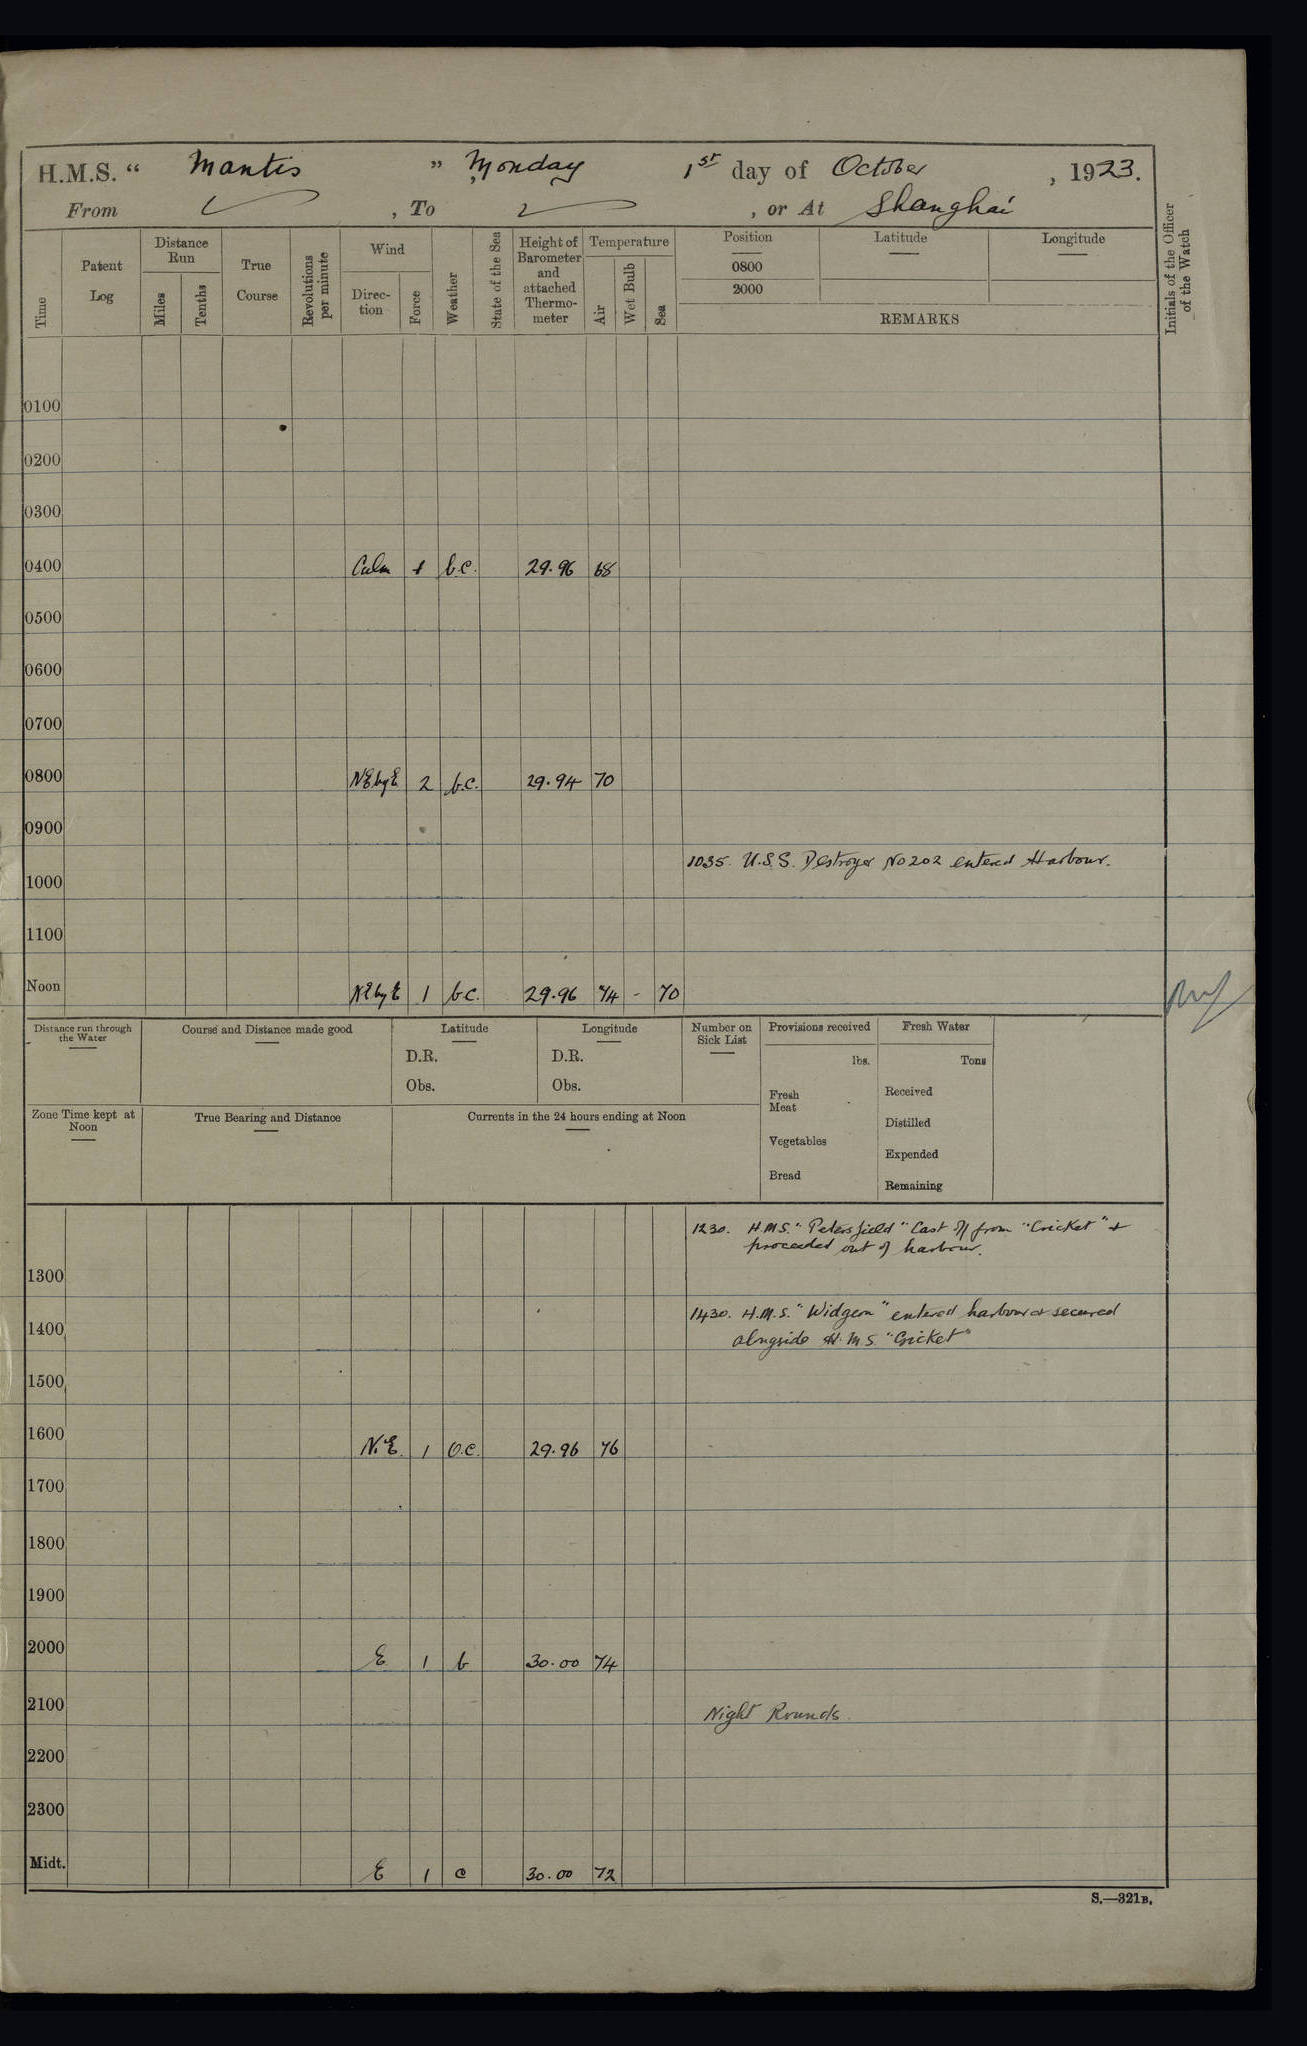 H.M.S. “ Mantis ” Monday 1st day of October , 1923.
From , To , or At Shanghai
Time
Patent Log
Distance Run
Miles
Tenths
True Course
Revolutions per minute
Wind
Direc-tion
Force
Weather
State of the Sea
Height of Barometer and attached Thermo-meter
Temperature
Air
Wet Bulb
Sea
Position
Latitude
Longitude
0800
2000
REMARKS
Initials of the Officer of the Watch
0100
0200
0300
0400 Calm b.c. 29.96 68
0500
0600
0700
0800 NE by E 2 b.c. 29.94 70
0900
1035. U.S.S. Destroyer No 202 entered Harbour.
1000
1100
Noon NE by E 1 b.c. 29.96 74 - 70
Distance run through the Water
Course and Distance made good
Latitude
D.R.
Obs.
Longitude
D.R.
Obs.
Number on Sick List
Provisions received
lbs.
Fresh Meat
Vegetables
Bread
Fresh Water
Tons
Received
Distilled
Expended
Remaining
Zone Time kept at Noon
True Bearing and Distance
Currents in the 24 hours ending at Noon
1230. H.M.S. "Petersfield" Cast off from "Cricket" &
proceeded out of harbour.
1300
1430. H.M.S. "Widgeon" entered harbour & secured
1400
alongside H.M.S. "Cricket"
1500
1600 N.E. 1 o.c. 29.96 76
1700
1800
1900
2000 E 1 b 30.00 74
2100 Night Rounds.
2200
2300
Midt. E 1 c 30.00 72
S.—321B.